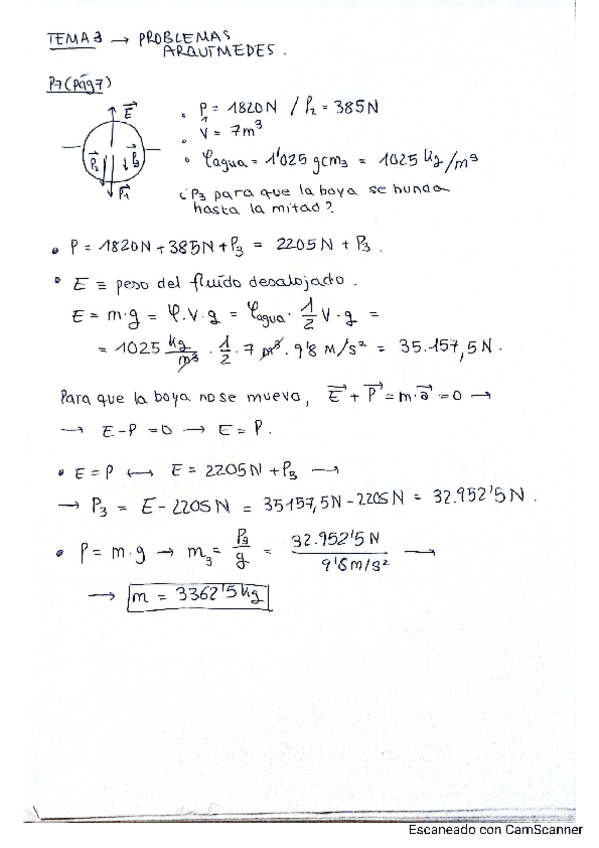 TEMA 3 → PROBLEMAS
ARQUÍMEDES.
P7 (pág 7)
E
P₂ P₃
P₁
• P₁ = 1820N / P₂ = 385N
• V = 7m³
• φagua = 1'025 gcm³ = 1025 kg/m³
¿P₃ para que la boya se hunda
hasta la mitad?
• P = 1820N + 385N + P₃ = 2205N + P₃.
• E ≡ peso del fluído desalojado.
E = m·g = φ·V·g = φagua · 1/2 V·g =
= 1025 kg/m³ · 1/2 · 7 m³ · 9'8 m/s² = 35.157,5N.
Para que la boya no se mueva, E + P = m·a = 0 →
→ E-P = 0 → E = P.
• E = P ↔ E = 2205N + P₃ →
→ P₃ = E - 2205N = 35157,5N - 2205N = 32.952'5N.
• P = m·g → m₃ = P₃/g = 32.952'5N / 9'8 m/s² →
→ m = 3362'5 kg
Escaneado con CamScanner